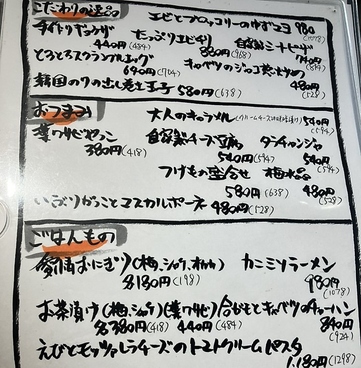 こだわりの逸品
エビとブロッコリーのゆずマヨ 980(1078)
手作りギョウザ 440円(484)
たっぷりエビチリ 880円(968)
自家製ミートピザ 740円(814)
とろとろスクランブルエッグ 640円(704)
キャベツの 480円(528)
韓国のりの出し巻き玉子 580円(638)
おつまみ
大人のキャラメル 540円(594)
葉ワサビ 380円(418)
自家製チーズ豆腐 540円(594)
タラチャンジャ 540円(594)
つけもの盛合せ 580円(638)
梅水晶 480円(528)
いぶりがっことマスカルポーネ 480円(528)
ごはんもの
愛情おにぎり(梅、シャケ、オカカ) 各180円(198)
カニミソラーメン 980円(1078)
お茶漬け(梅、シャケ) 各380円(418) (葉ワサビ) 440円(484)
とキャベツのチャーハン 840円(924)
えびとモッツァレラチーズのトマトクリームパスタ
1,180円(1298)